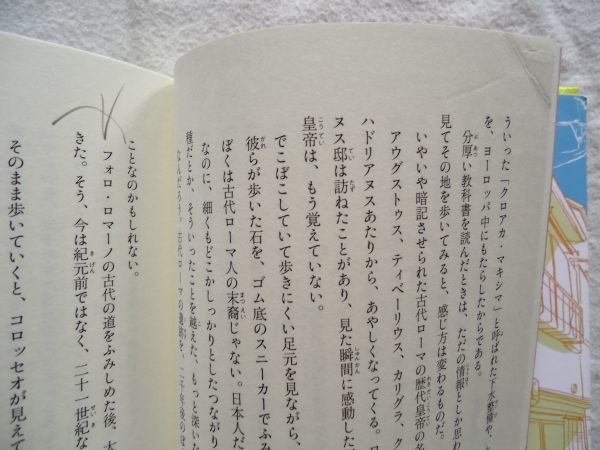 ういった「クロアカ・マキシマ」と呼ばれた下水整備や、
を、ヨーロッパ中にもたらしたからである。
分厚い教科書を読んだときは、ただの情報としか思わ
見てその地を歩いてみると、感じ方は変わるものだ。
いやいや暗記させられた古代ローマの歴代皇帝の名
アウグストゥス、ティベーリウス、カリグラ、ク
ハドリアヌスあたりから、あやしくなってくる。
ヌス邸は訪ねたことがあり、見た瞬間に感動した
皇帝は、もう覚えていない。
でこぼこしていて歩きにくい足元を見ながら、
彼らが歩いた石を、ゴム底のスニーカーでふみ
ぼくは古代ローマ人の末裔じゃない。日本人だ
なのに、細くもどこかしっかりとしたつながり
種だとか、そういったことを越えた、もっと深い
なんだろう。古代ローマの遺跡を、二千年後のぼ
ことなのかもしれない。
フォロ・ロマーノの古代の道をふみしめた後、
きた。そう、今は紀元前ではなく、二十一世紀な
そのまま歩いていくと、コロッセオが見えて